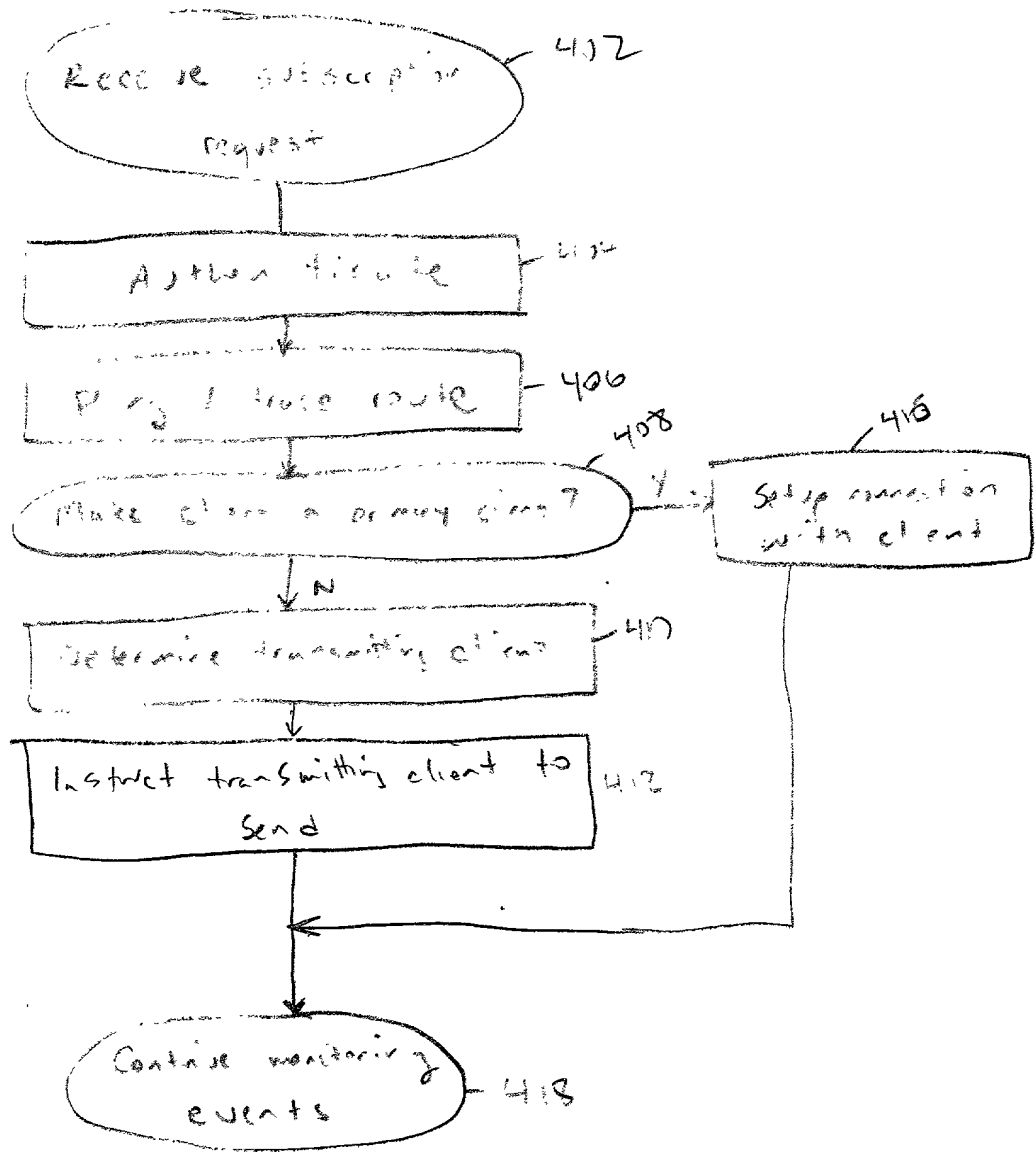 402
Receive subscription
request
404
Authenticate
406
Ping / trace route
408
Make client a primary client?
Y
416
Setup connection
with client
N
410
Determine transmitting client
Instruct transmitting client to
412
Send
Continue monitoring
events
418